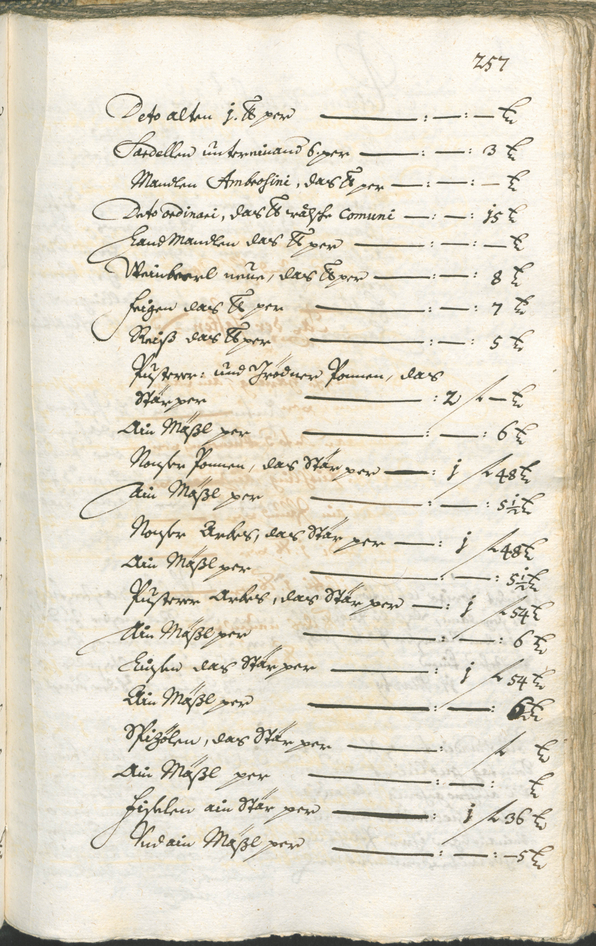 257
Deto alten j. ℔ per — : — : — kr
Sardellen untereinand 6. per — : — : 3 kr
Mandlen Ambrosini, das ℔ per — : — : — kr
Deto ordinari, das ℔ wälsche Comuni — : — : 15 kr
Landmandlen das ℔ per — : — : — kr
Weinbeerl neüe, das ℔ per — : — : 8 kr
Feigen das ℔ per — : — : 7 kr
Reiß das ℔ per — : — : 5 kr
Pusterer: und Ponnen, das
Stär per — : 2 f — kr
Ain Mäßl per — : — : 6 kr
Nonser Ponnen, das Stär per — : j f 48 kr
Ain Mäßl per — : — : 5½ kr
Nonser Arbes, das Stär per — : j f 48 kr
Ain Mäßl per — : — : 5½ kr
Pusterer Arbes, das Stär per — : j f 54 kr
Ain Mäßl per — : — : 6 kr
Linsen das Stär per — : j f 54 kr
Ain Mäßl per — : — : 6 kr
das Stär per — : f kr
Ain Mäßl per — : — : kr
Fiselen ain Stär per — : j f 36 kr
Und ain Mäßl per — : — : — 5 kr